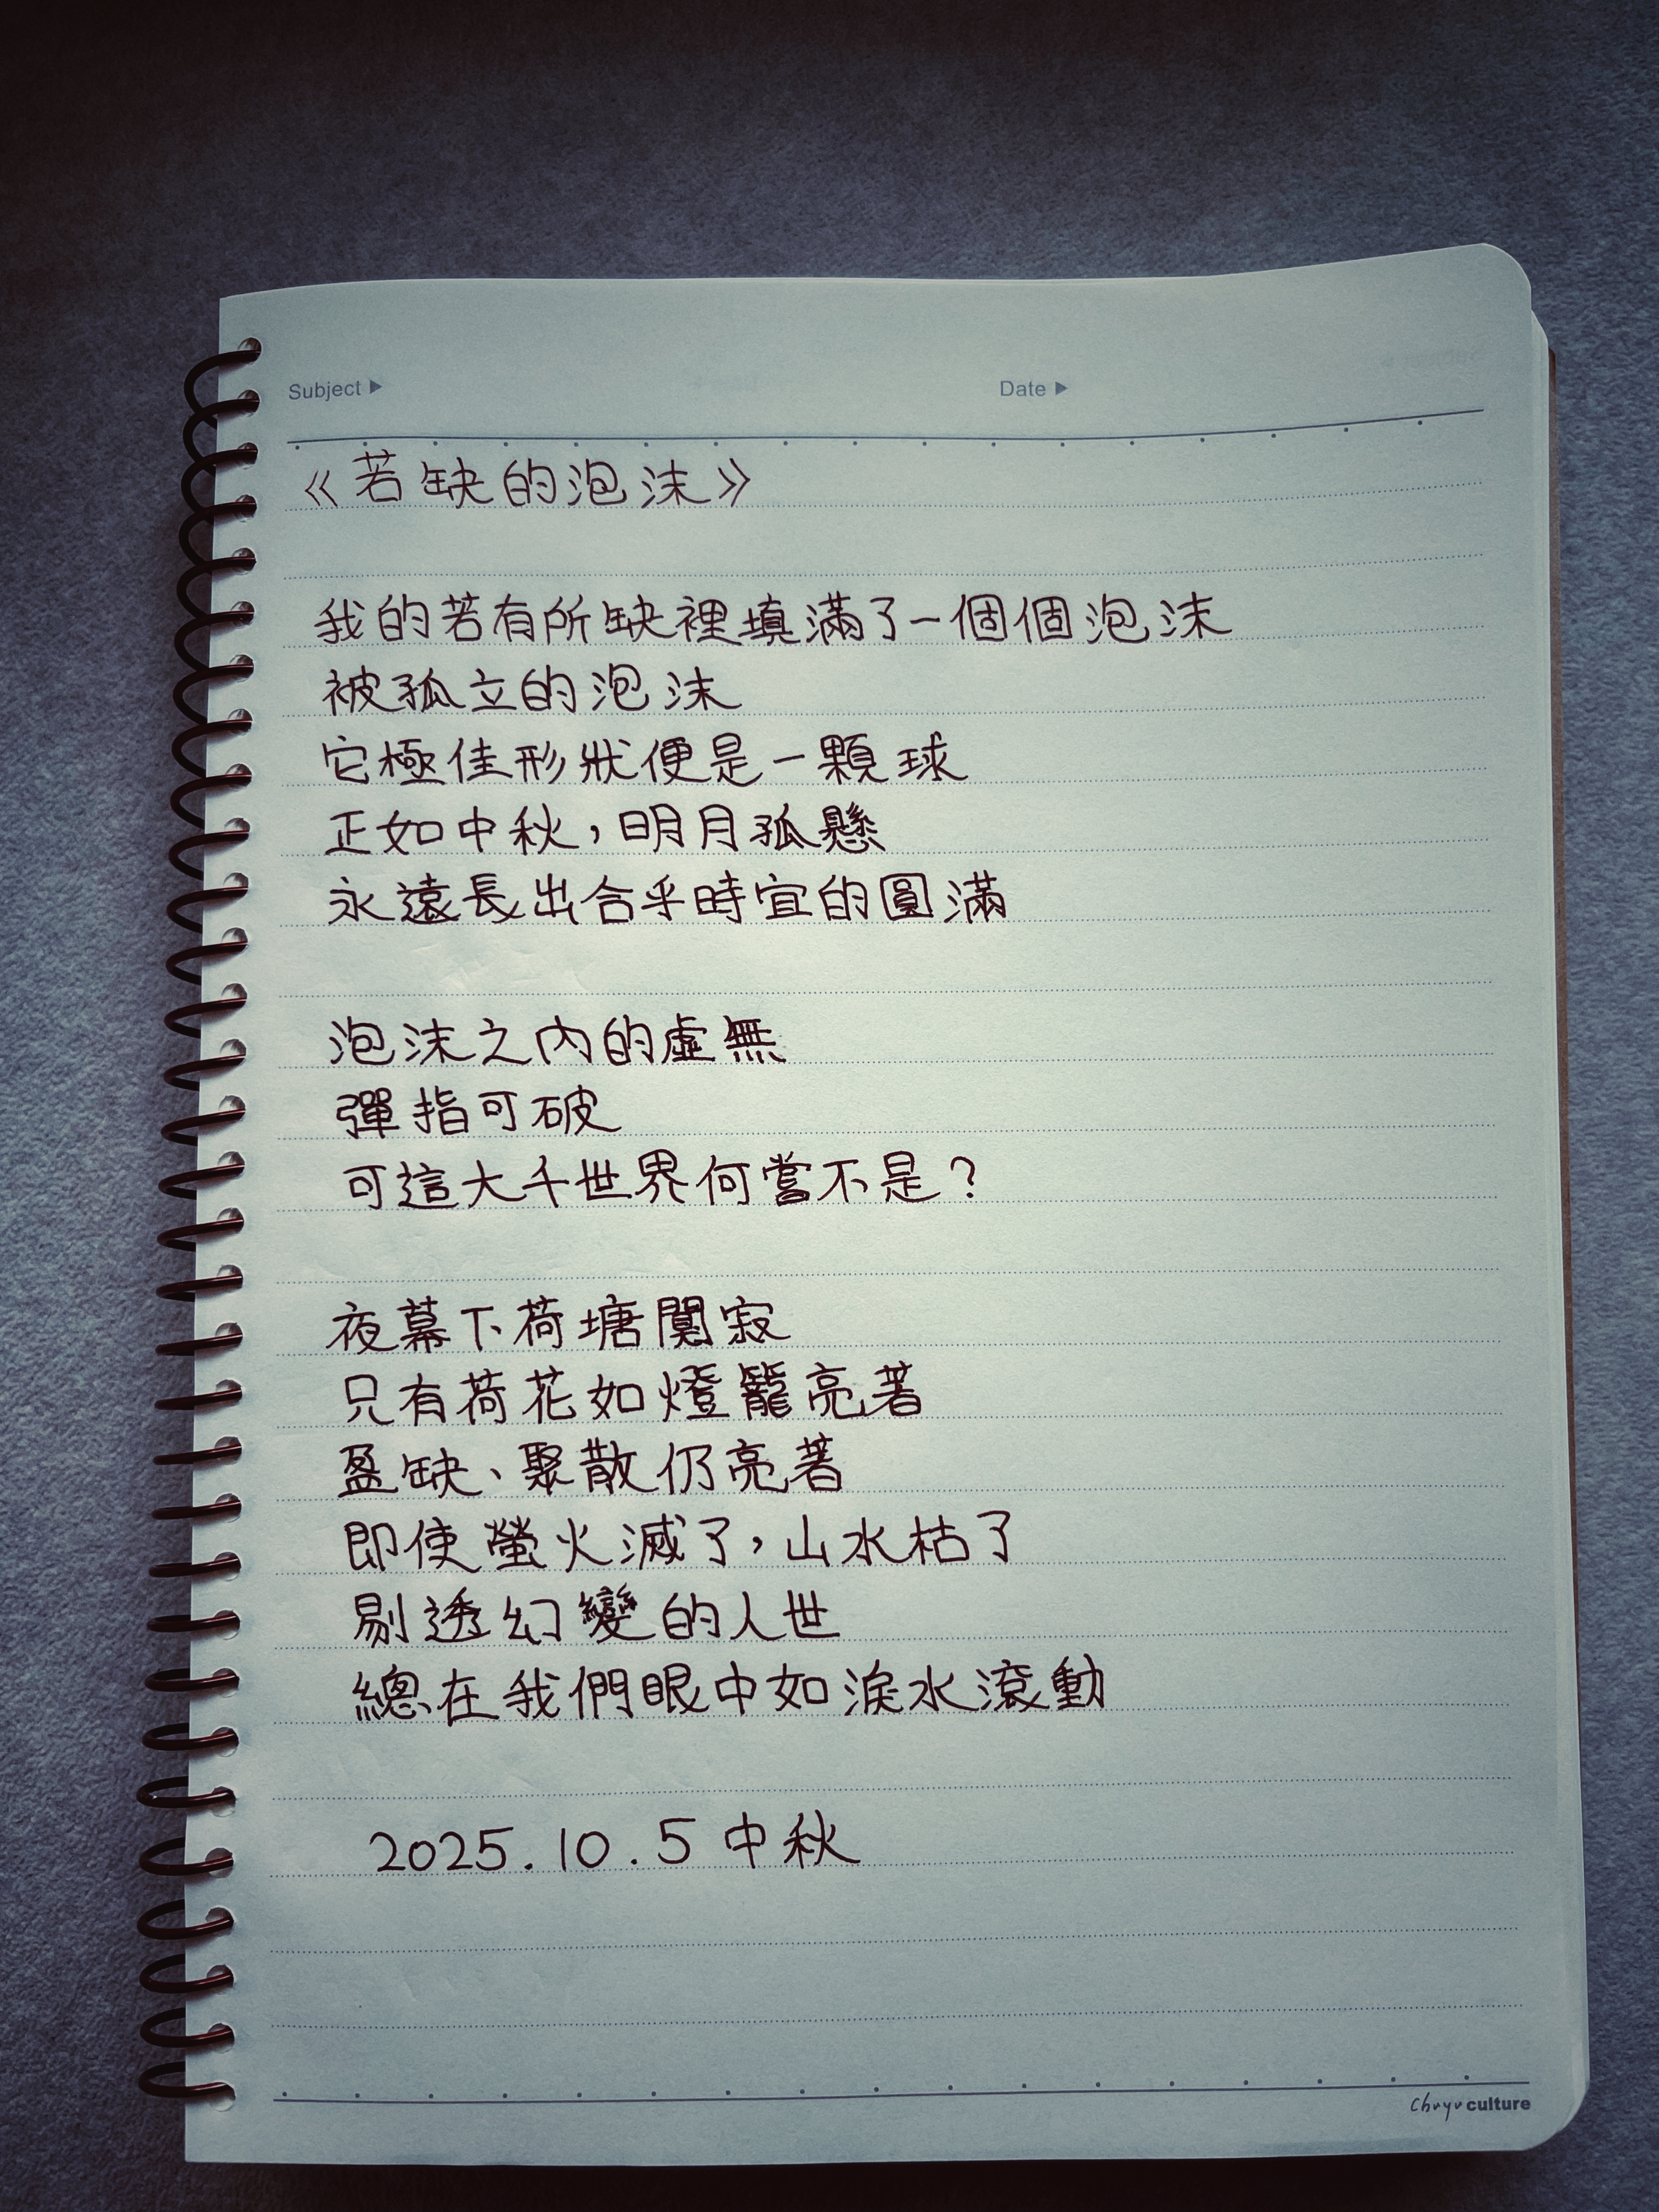 Subject ▶ Date ▶
《若缺的泡沫》
我的若有所缺裡填滿了一個個泡沫
被孤立的泡沫
它極佳形狀便是一顆球
正如中秋，明月孤懸
永遠長出合乎時宜的圓滿
泡沫之內的虛無
彈指可破
可這大千世界何嘗不是？
夜幕下荷塘闃寂
只有荷花如燈籠亮著
盈缺、聚散仍亮著
即使螢火滅了，山水枯了
剔透幻變的人世
總在我們眼中如淚水滾動
2025.10.5 中秋
Chuyu culture